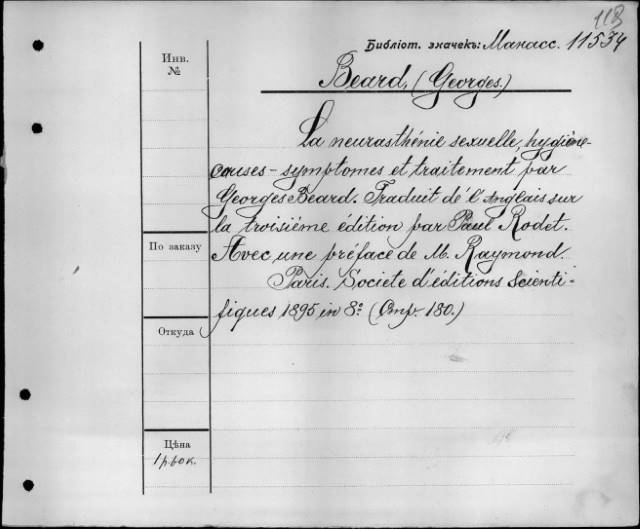 118
Библіот. значекъ: Манасс. 11534
Инв.
№
Beard, (Georges.)
La neurasthénie sexuelle, hygiène-
causes - symptomes et traitement par
Georges Beard. Traduit dé l'Anglais sur
la troisiéme édition par Paul Rodet.
По заказу
Avec une préface de M. Raymond.
Paris. Societe d'éditions Scienti-
fiques 1895 in 8º (Стр. 180.)
Откуда
Цѣна
1 р. 60 к.